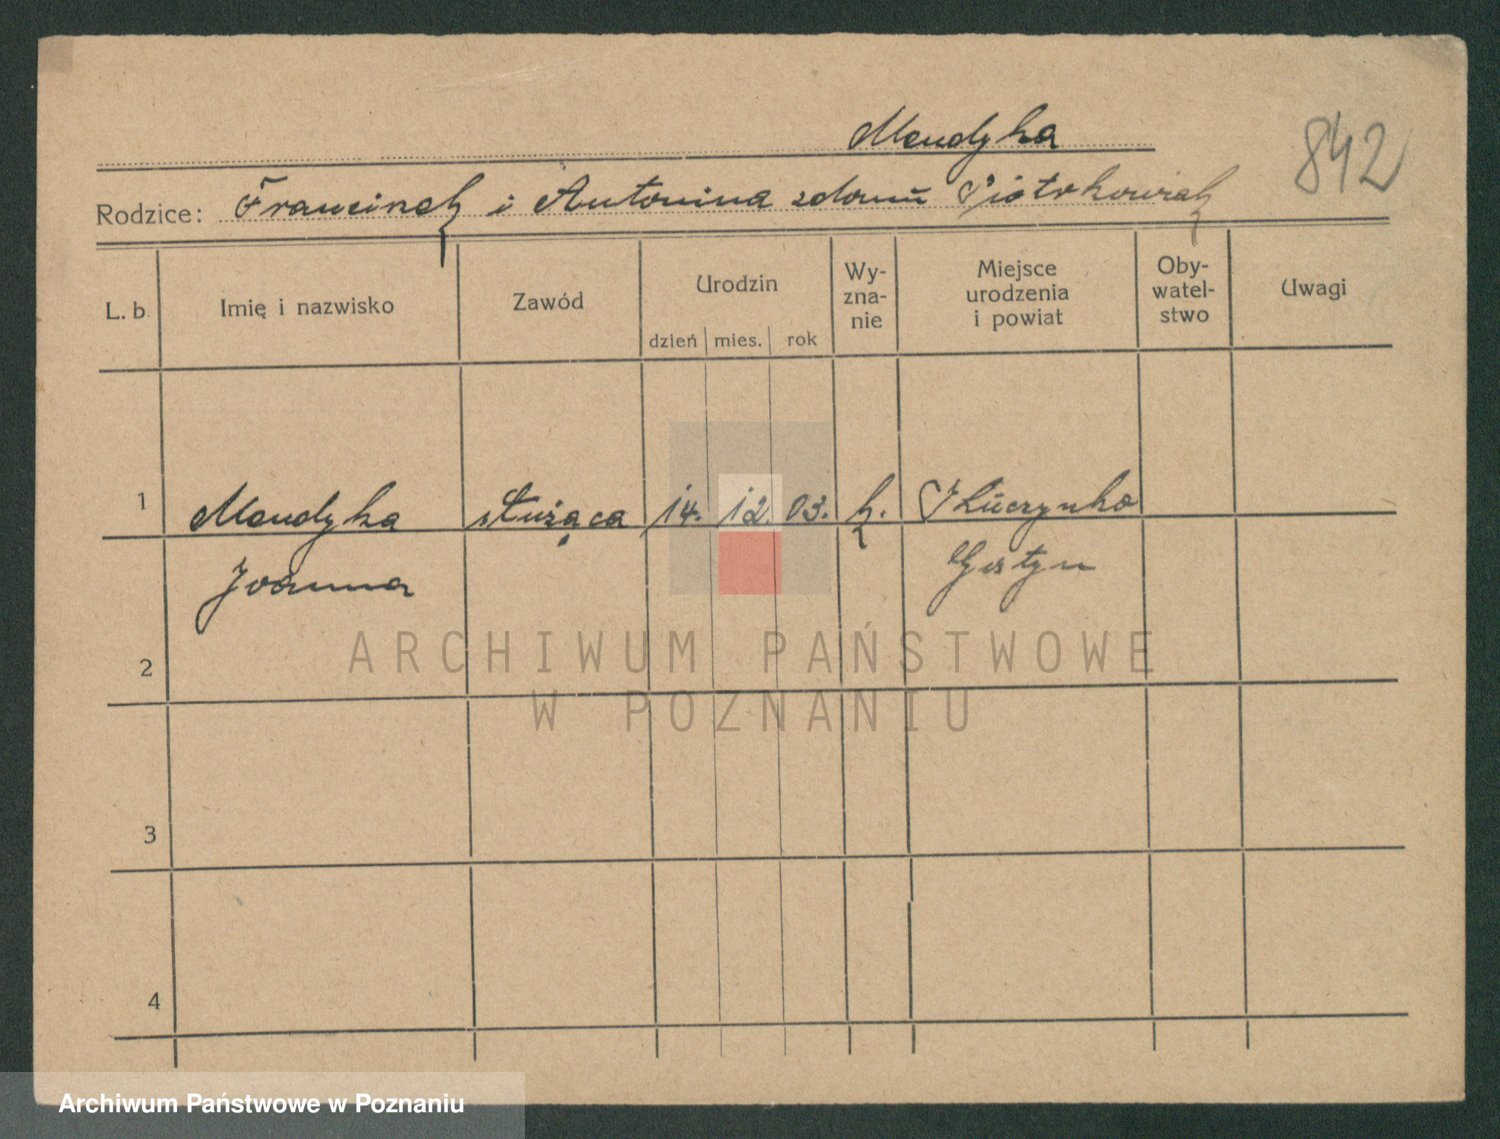 Mendyka
842
Rodzice: Franciszek i Antonina z domu Piotrkowiak
L. b. Imię i nazwisko Zawód Urodzin dzień mies. rok Wy-zna-nie Miejsce urodzenia i powiat Oby-watel-stwo Uwagi
1 Mendyka służąca 14. 12. 03. k.
Joanna Gostyń
2
3
4
ARCHIWUM PAŃSTWOWE
W POZNANIU
Archiwum Państwowe w Poznaniu